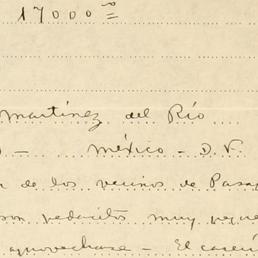 17000 =
Martínez del Río
México - D.F.
de los vecinos de
son pedacitos muy
aprovechase - El